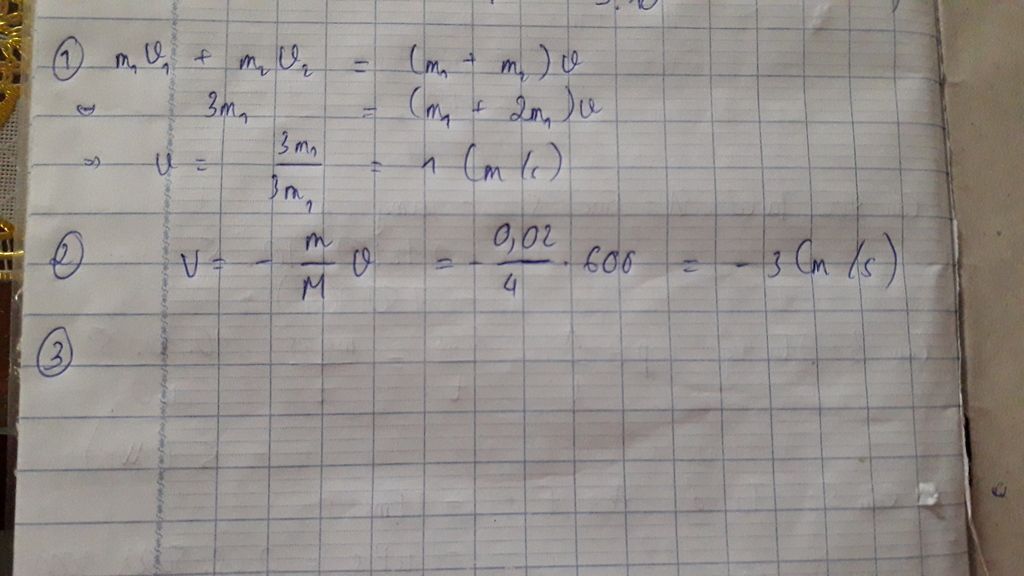 ① m₁v₁ + m₂v₂ = (m₁ + m₂)v
⇔ 3m₁ = (m₁ + 2m₁)v
⇒ v = 3m₁/3m₁ = 1 (m/s)
② V = - m/M v = - 0,02/4 . 606 = - 3 (m/s)
③